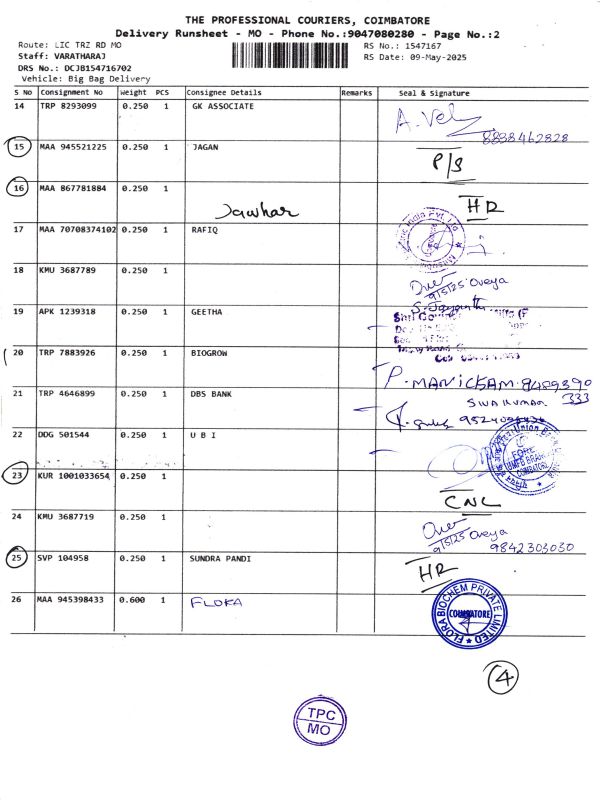 THE PROFESSIONAL COURIERS, COIMBATORE
Delivery Runsheet - MO - Phone No.:9047080280 - Page No.:2
Route: LIC TRZ RD MO
RS No.: 1547167
Staff: VARATHARAJ
RS Date: 09-May-2025
DRS No.: DCJB154716702
Vehicle: Big Bag Delivery
S No Consignment No Weight PCS Consignee Details Remarks Seal & Signature
14 TRP 8293099 0.250 1 GK ASSOCIATE
A.Vel
15 MAA 945521225 0.250 1 JAGAN
P/S
16 MAA 867781884 0.250 1
Jawhar
HR
17 MAA 70708374102 0.250 1 RAFIQ
18 KMU 3687789 0.250 1
9/5/25 Oveya
19 APK 1239318 0.250 1 GEETHA
20 TRP 7883926 0.250 1 BIOGROW
P. MANICKAM
21 TRP 4646899 0.250 1 DBS BANK
333
22 DDG 501544 0.250 1 U B I
UMFB BRANCH
COIMBATORE
23 KUR 1001033654 0.250 1
CNL
24 KMU 3687719 0.250 1
9/5/25 Oveya
9842303030
25 SVP 104958 0.250 1 SUNDRA PANDI
HR
26 MAA 945398433 0.600 1 FLORA
FLORA BIOCHEM PRIVATE LIMITED
COIMBATORE
4
TPC
MO